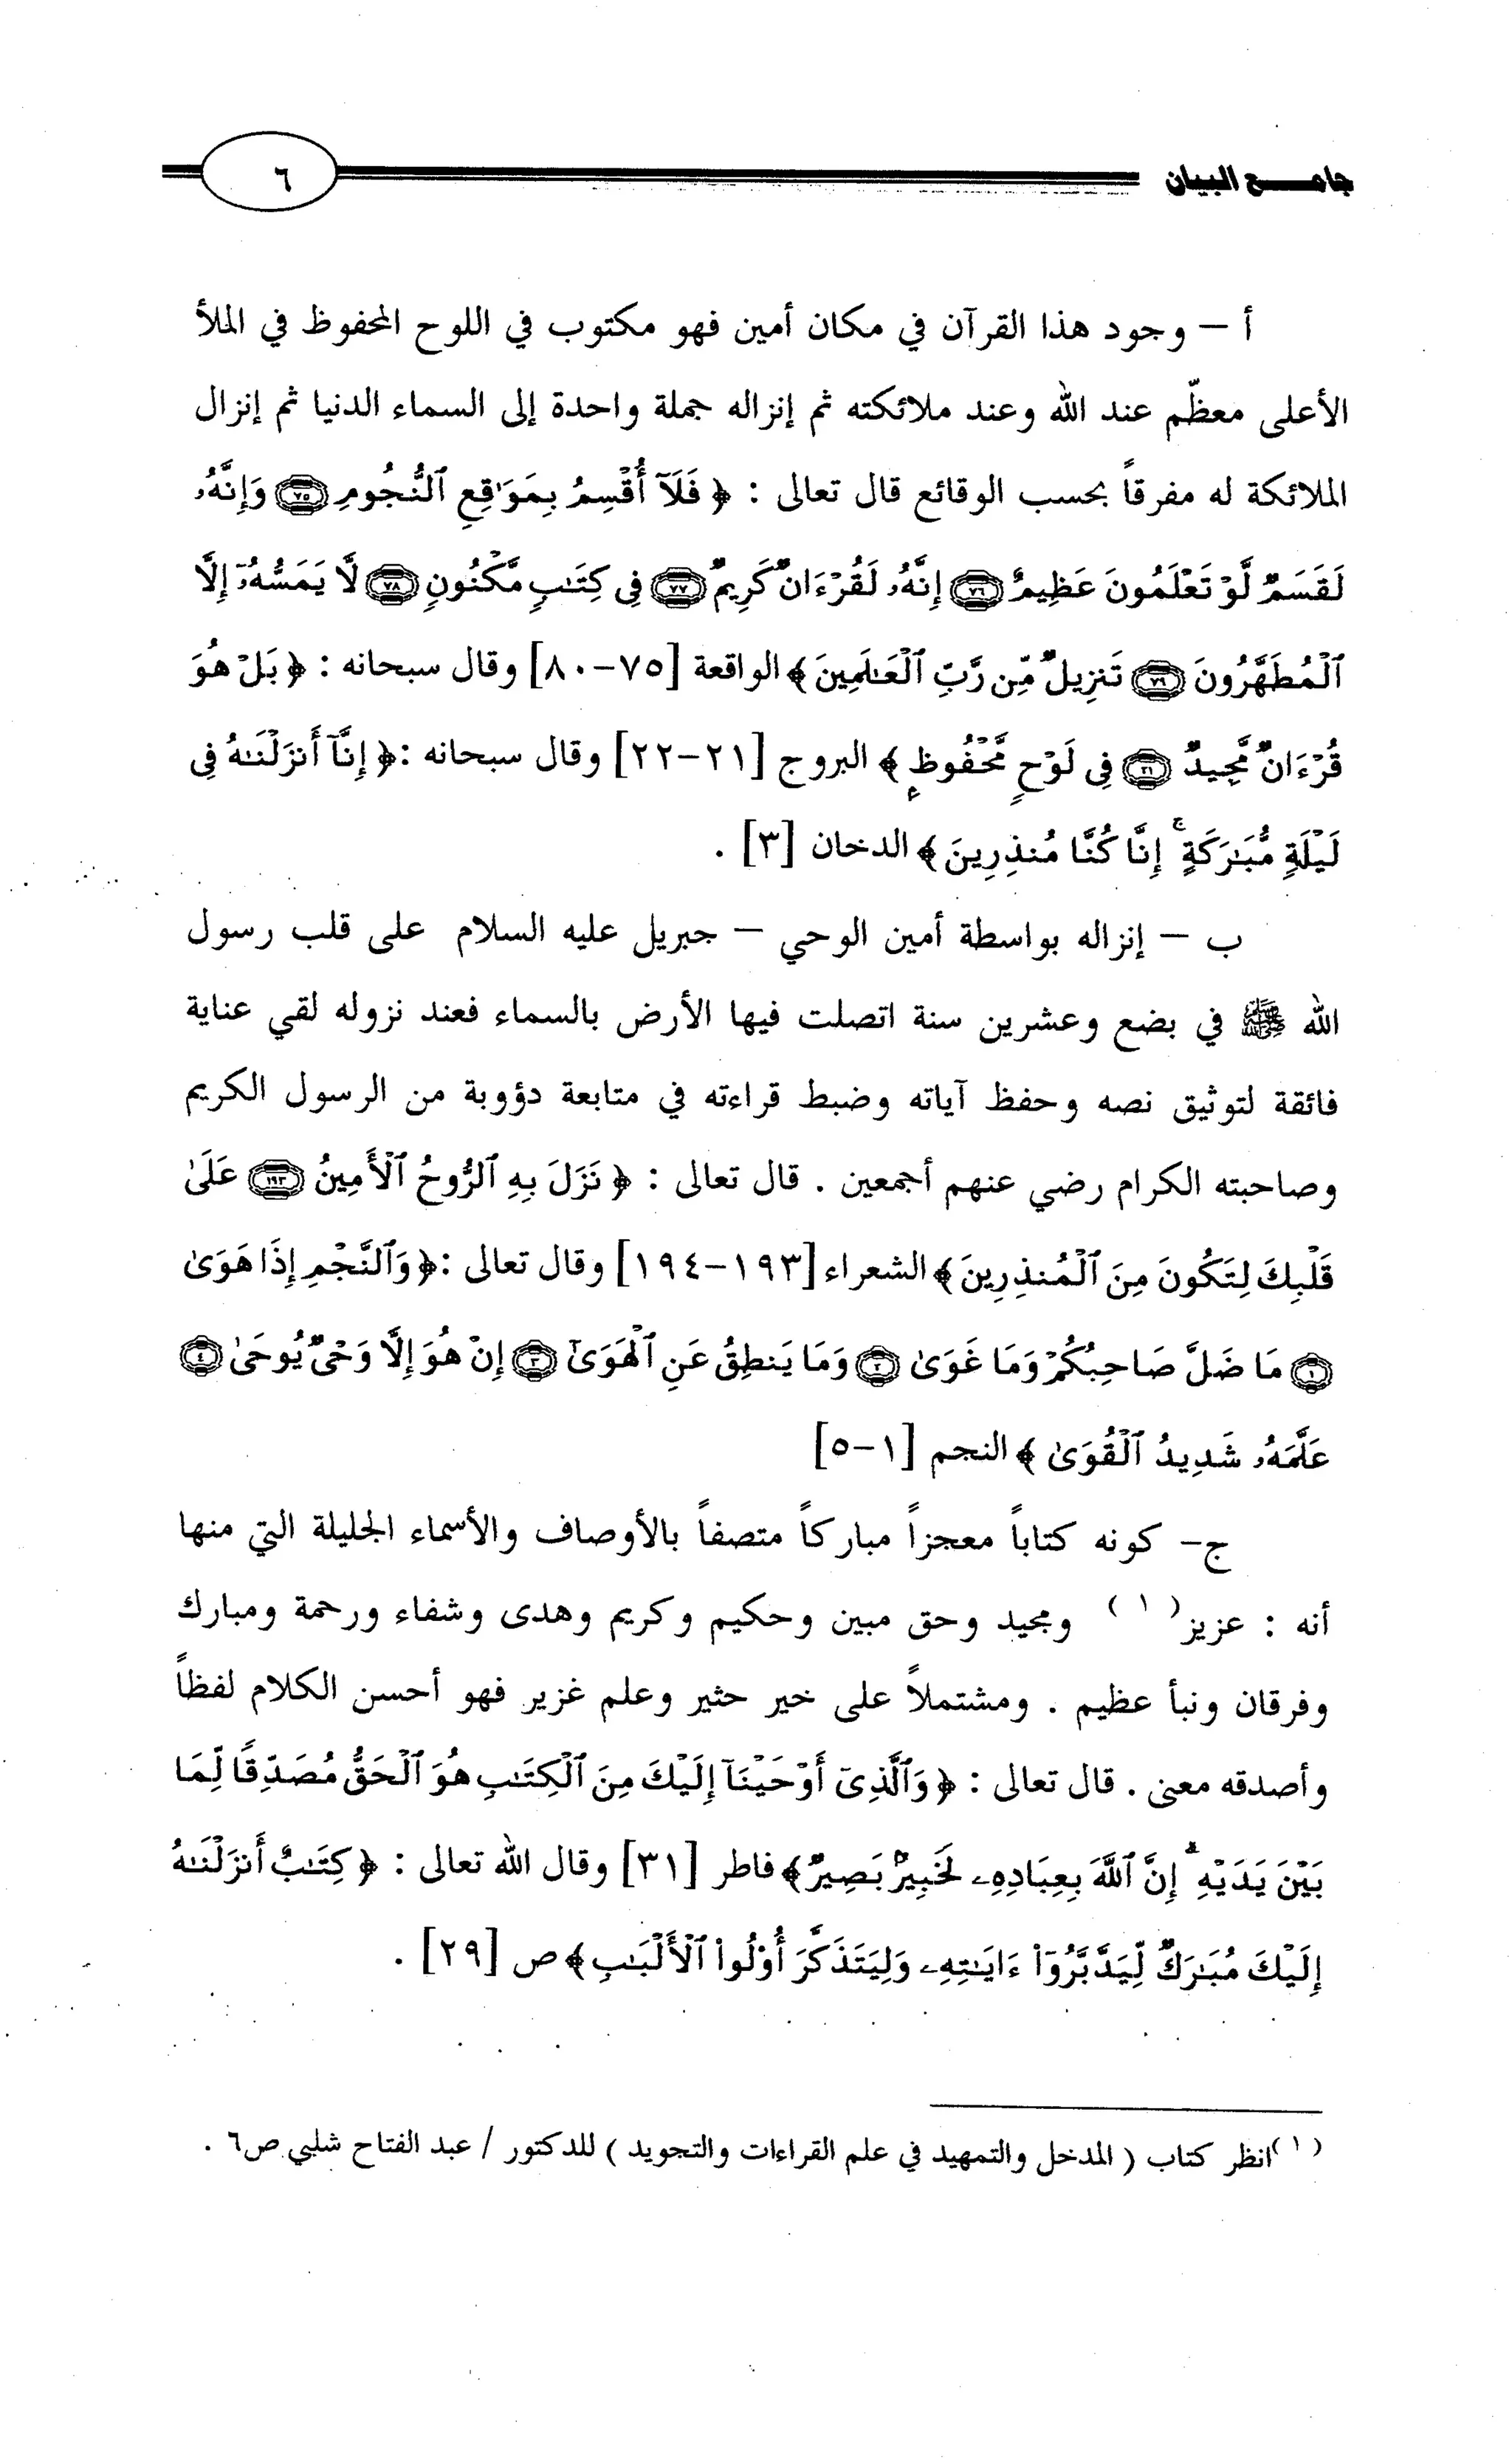 جامع البيان
٦
أ – وجود هذا القرآن في مكان أمين فهو مكتوب في اللوح المحفوظ في الملأ
الأعلى معظّم عند الله وعند ملائكته ثم إنزاله جملة واحدة إلى السماء الدنيا ثم إنزال
الملائكة له مفرقاً بحسب الوقائع قال تعالى : ﴿ فَلَآ أُقْسِمُ بِمَوَٰقِعِ ٱلنُّجُومِ ٧٥ وَإِنَّهُۥ
لَقَسَمٌ لَّوْ تَعْلَمُونَ عَظِيمٌ ٧٦ إِنَّهُۥ لَقُرْءَانٌ كَرِيمٌ ٧٧ فِى كِتَٰبٍ مَّكْنُونٍ ٧٨ لَّا يَمَسُّهُۥٓ إِلَّا
ٱلْمُطَهَّرُونَ ٧٩ تَنزِيلٌ مِّن رَّبِّ ٱلْعَٰلَمِينَ ﴾ الواقعة [٧٥-٨٠] وقال سبحانه : ﴿ بَلْ هُوَ
قُرْءَانٌ مَّجِيدٌ ٢١ فِى لَوْحٍ مَّحْفُوظٍ ﴾ البروج [٢١-٢٢] وقال سبحانه :﴿ إِنَّآ أَنزَلْنَٰهُ فِى
لَيْلَةٍ مُّبَٰرَكَةٍ ۚ إِنَّا كُنَّا مُنذِرِينَ ﴾ الدخان [٣] .
ب – إنزاله بواسطة أمين الوحي – جبريل عليه السلام على قلب رسول
الله ﷺ في بضع وعشرين سنة اتصلت فيها الأرض بالسماء فعند نزوله لقي عناية
فائقة لتوثيق نصه وحفظ آياته وضبط قراءته في متابعة دؤوبة من الرسول الكريم
وصاحبته الكرام رضي عنهم أجمعين . قال تعالى : ﴿ نَزَلَ بِهِ ٱلرُّوحُ ٱلْأَمِينُ ١٩٣ عَلَىٰ
قَلْبِكَ لِتَكُونَ مِنَ ٱلْمُنذِرِينَ ﴾ الشعراء [١٩٣-١٩٤] وقال تعالى :﴿ وَٱلنَّجْمِ إِذَا هَوَىٰ
١ مَا ضَلَّ صَاحِبُكُمْ وَمَا غَوَىٰ ٢ وَمَا يَنطِقُ عَنِ ٱلْهَوَىٰٓ ٣ إِنْ هُوَ إِلَّا وَحْىٌ يُوحَىٰ ٤
عَلَّمَهُۥ شَدِيدُ ٱلْقُوَىٰ ﴾ النجم [١-٥]
ج- كونه كتاباً معجزاً مباركاً متصفاً بالأوصاف والأسماء الجليلة التي منها
أنه : عزيز(١) ومجيد وحق مبين وحكيم وكريم وهدى وشفاء ورحمة ومبارك
وفرقان ونبأ عظيم . ومشتملاً على خير حثير وعلم غزير فهو أحسن الكلام لفظاً
وأصدقه معنى . قال تعالى : ﴿ وَٱلَّذِىٓ أَوْحَيْنَآ إِلَيْكَ مِنَ ٱلْكِتَٰبِ هُوَ ٱلْحَقُّ مُصَدِّقًا لِّمَا
بَيْنَ يَدَيْهِ ۗ إِنَّ ٱللَّهَ بِعِبَادِهِۦ لَخَبِيرٌۢ بَصِيرٌ ﴾ فاطر [٣١] وقال الله تعالى : ﴿ كِتَٰبٌ أَنزَلْنَٰهُ
إِلَيْكَ مُبَٰرَكٌ لِّيَدَّبَّرُوٓا۟ ءَايَٰتِهِۦ وَلِيَتَذَكَّرَ أُو۟لُوا۟ ٱلْأَلْبَٰبِ ﴾ ص [٢٩] .
(١) انظر كتاب ( المدخل والتمهيد في علم القراءات والتجويد ) للدكتور / عبد الفتاح شلبي ص٦ .